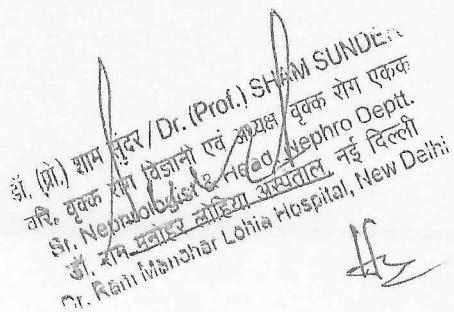 डॉ. (प्रो.) शाम सुंदर / Dr. (Prof.) SHAM SUNDER
वरि. वृक्क रोग विज्ञानी एवं अध्यक्ष वृक्क रोग एकक
Sr. Nephrologist & Head, Nephro Deptt.
डॉ. राम मनोहर लोहिया अस्पताल, नई दिल्ली
Dr. Ram Manohar Lohia Hospital, New Delhi